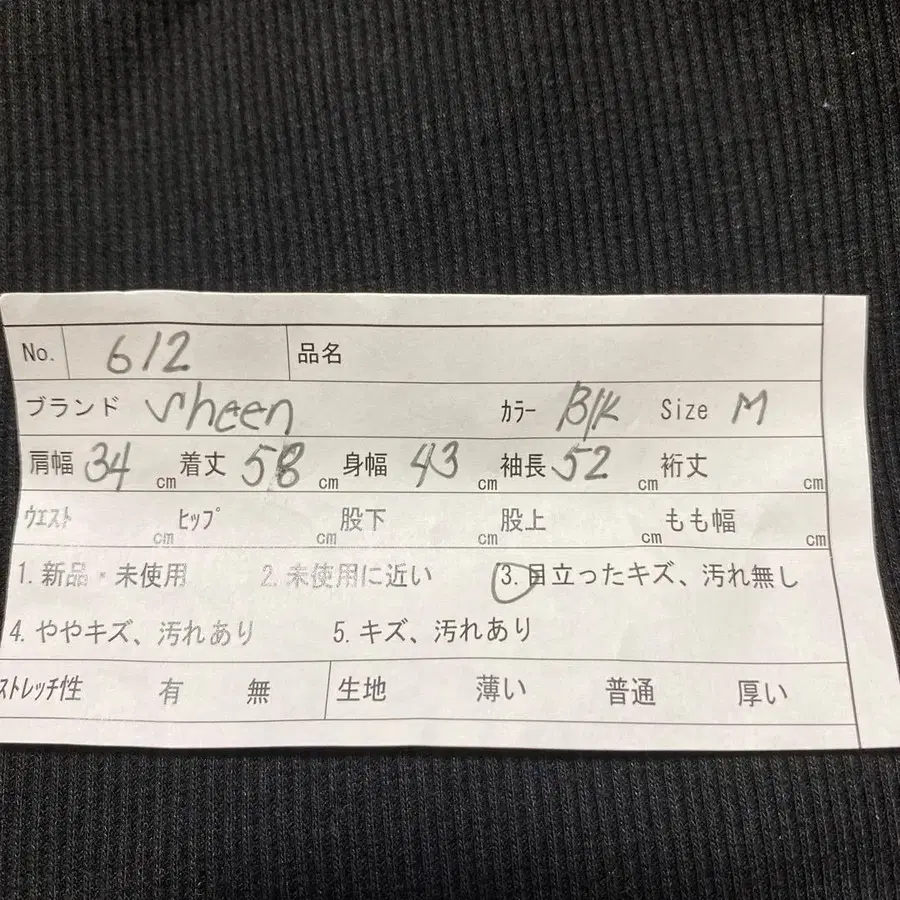 No. 612 品名
ブランド Sheen カラー Blk Size M
肩幅 34 cm 着丈 58 cm 身幅 43 cm 袖長 52 cm 裄丈 cm
ウエスト cm ヒップ cm 股下 cm 股上 cm もも幅 cm
1. 新品・未使用 2. 未使用に近い 3. 目立ったキズ、汚れ無し
4. ややキズ、汚れあり 5. キズ、汚れあり
ストレッチ性 有 無 生地 薄い 普通 厚い